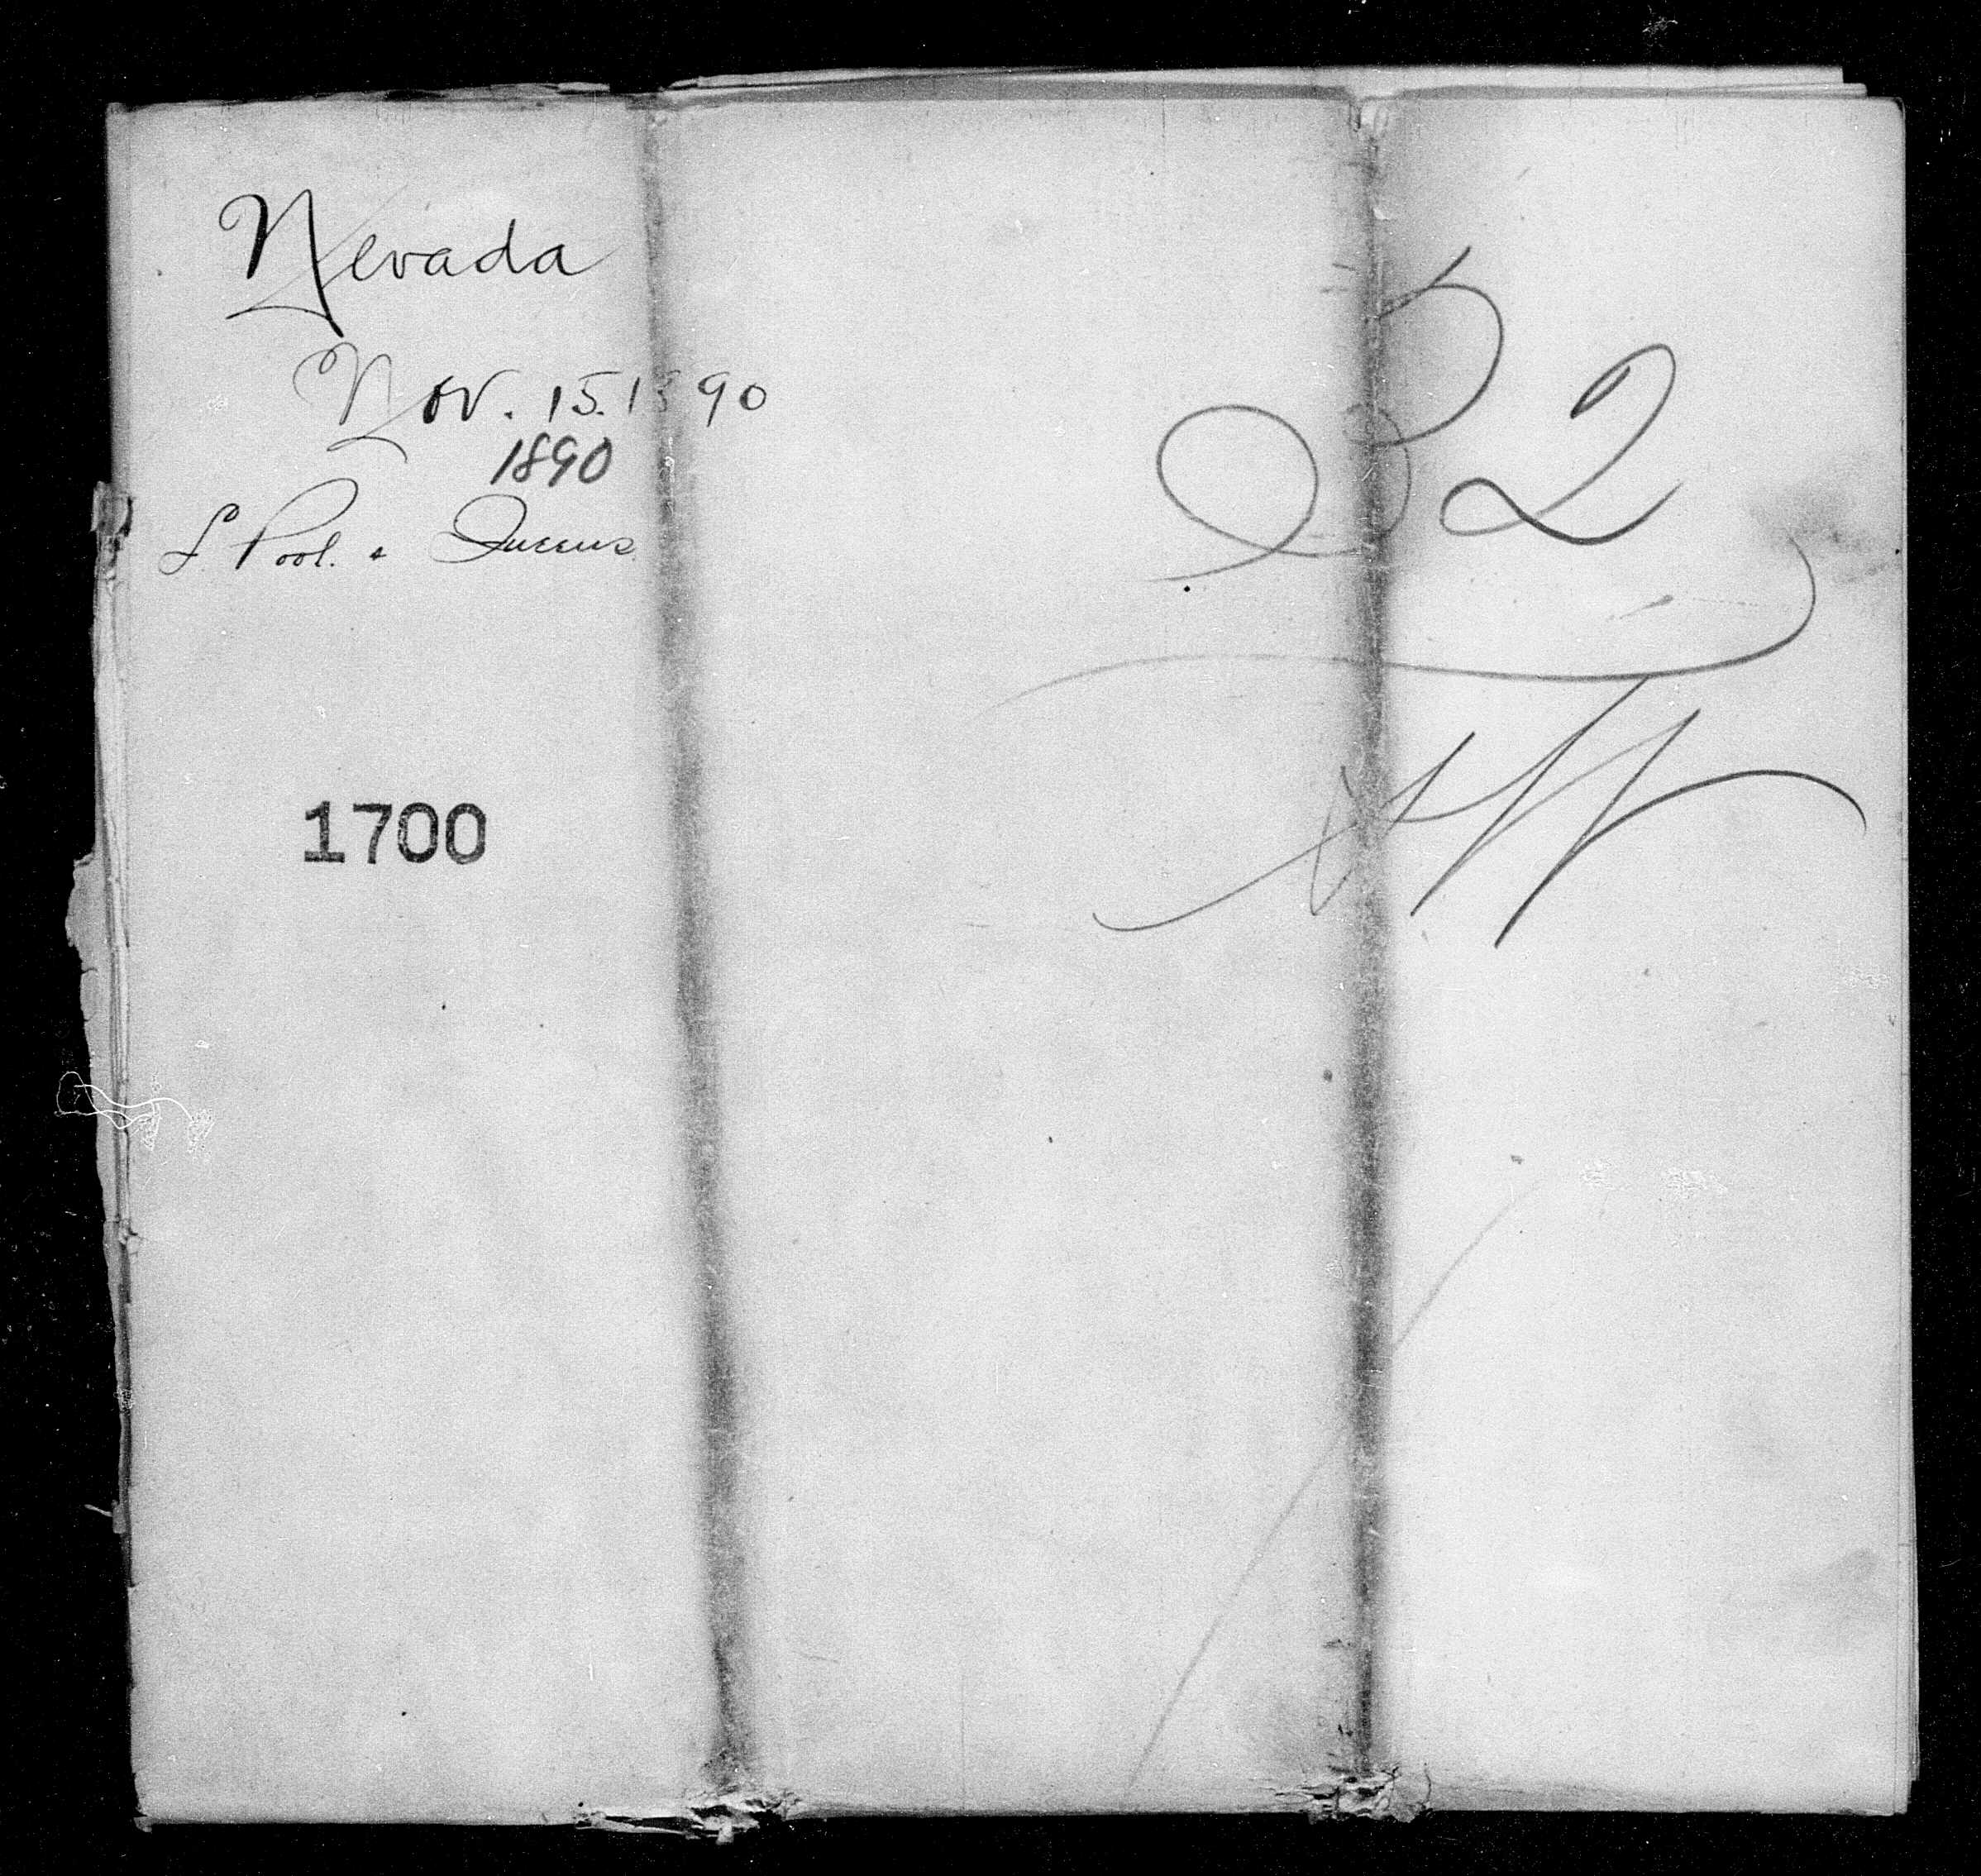 Nevada
Nov. 15. 1890
1890
L. Pool. & Queens
1700
32